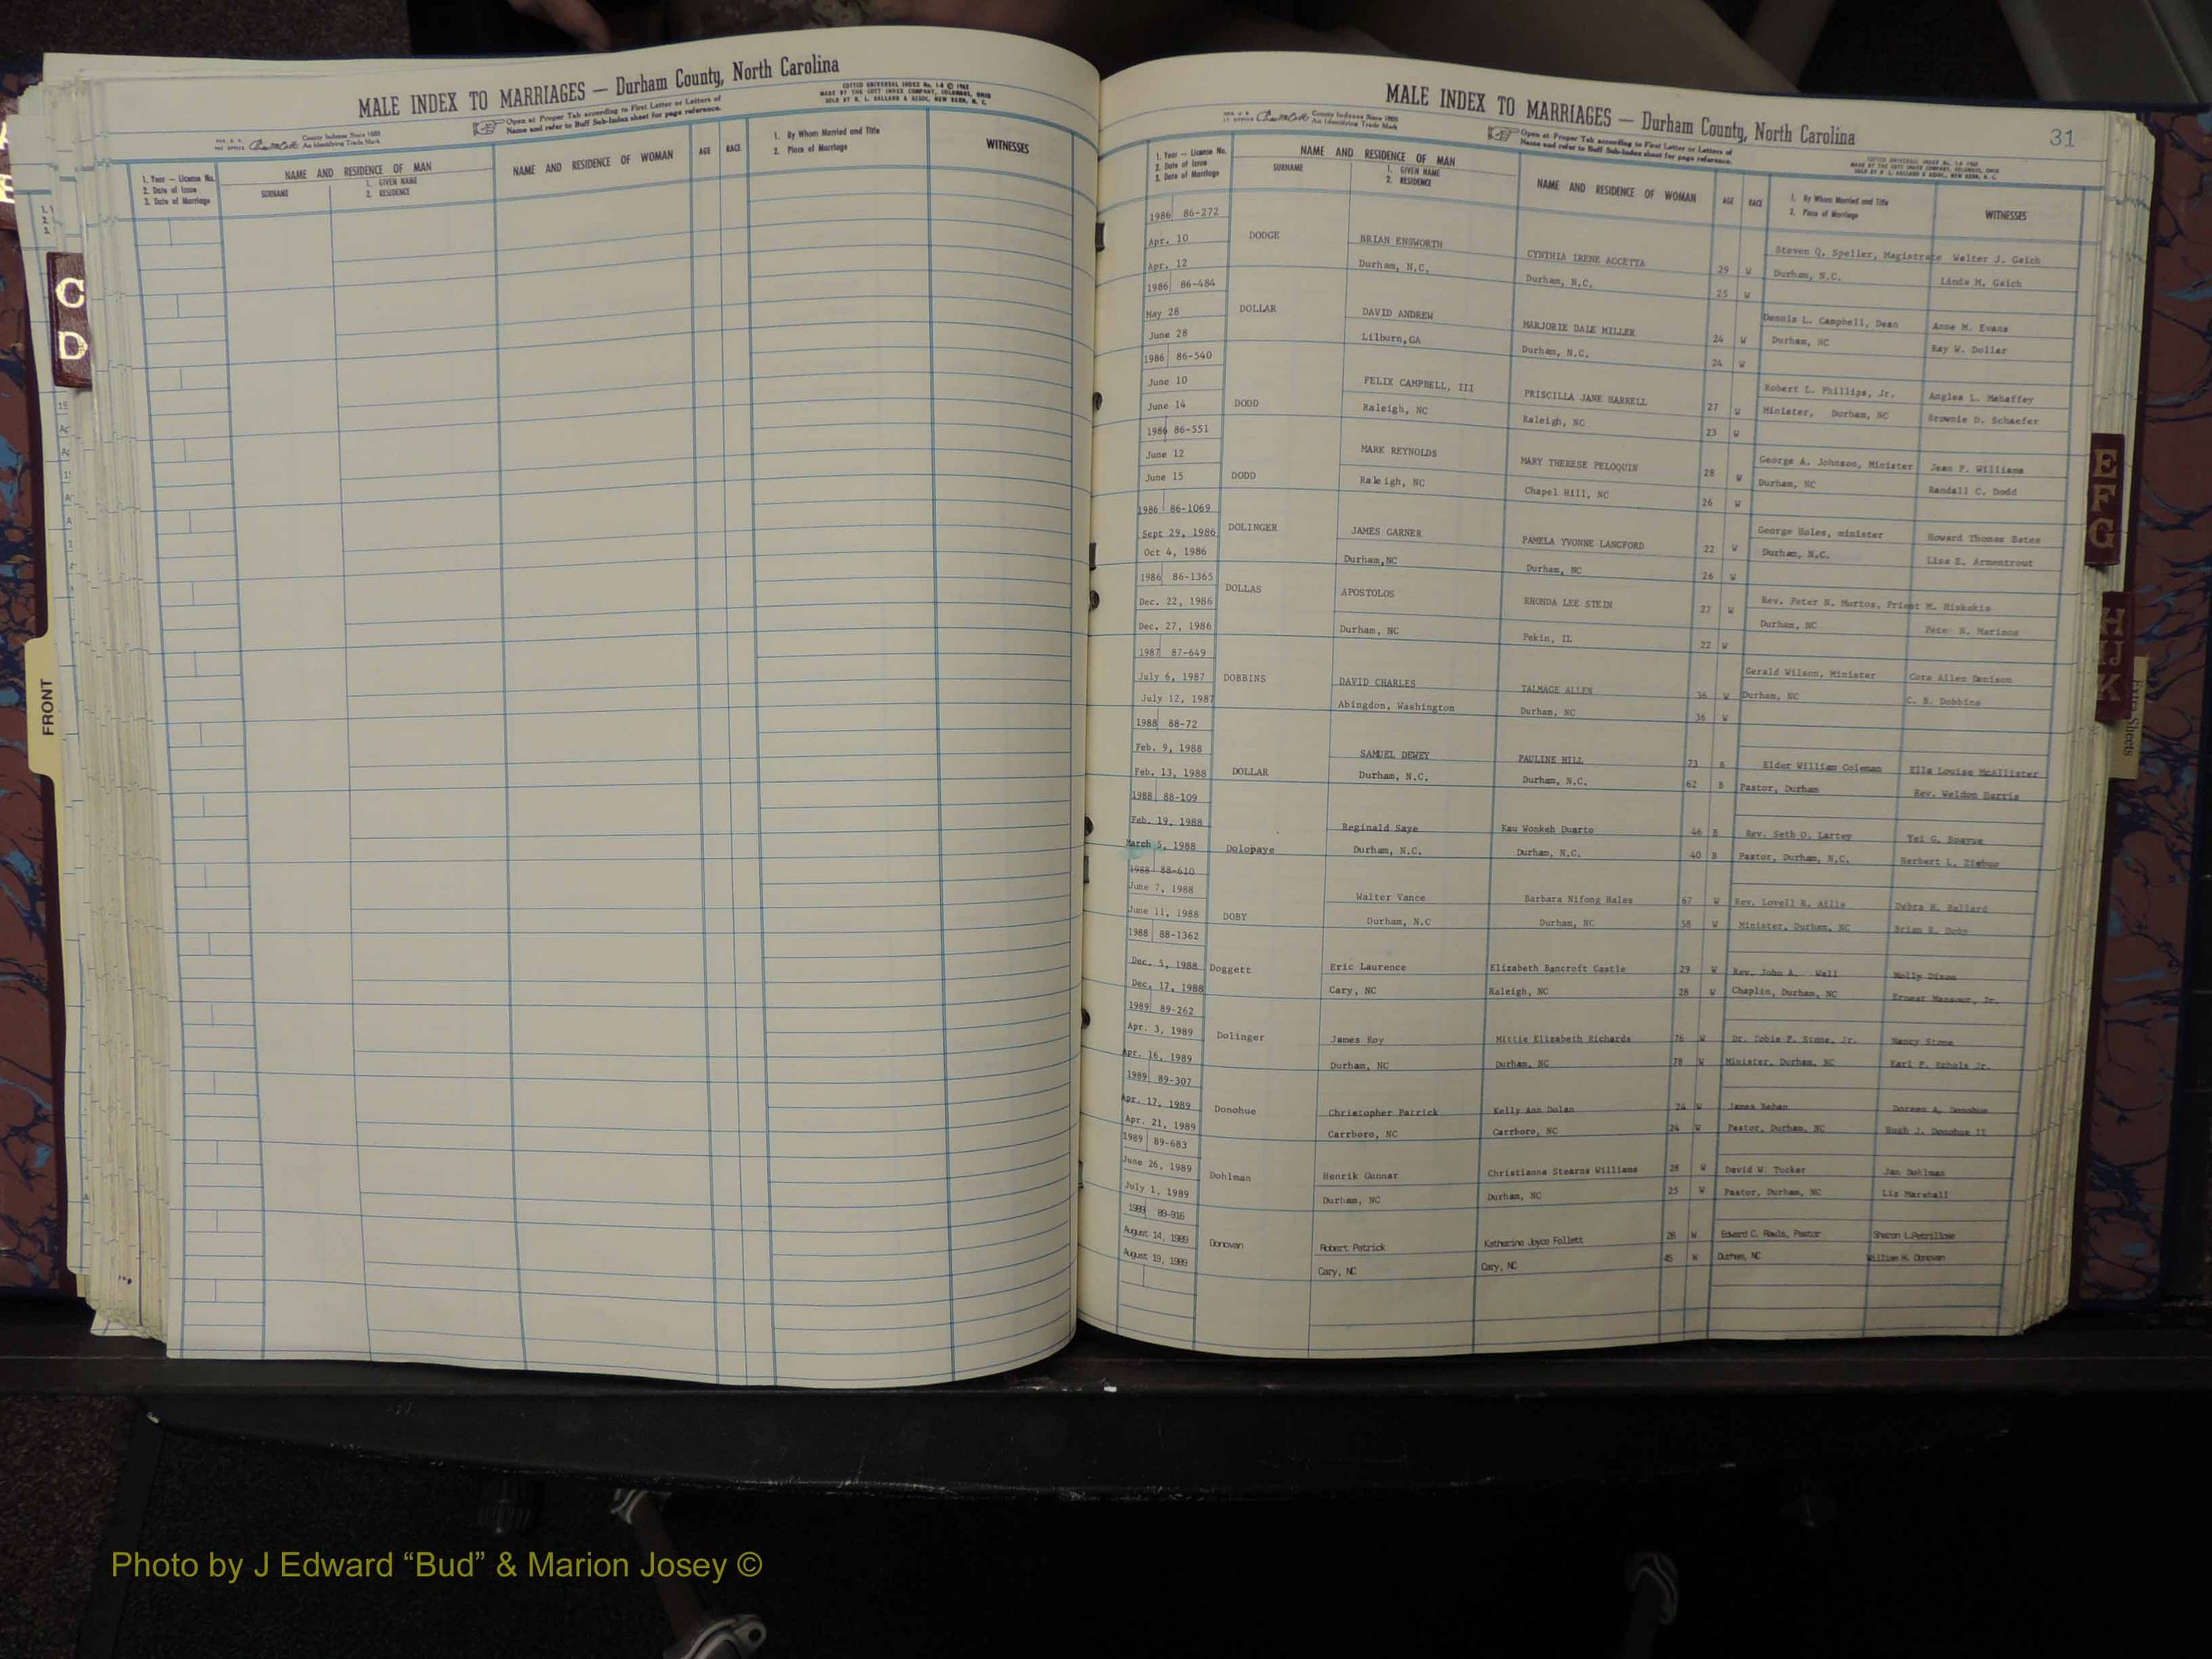 MALE INDEX TO MARRIAGES — Durham County, North Carolina
Open at Proper Tab according to First Letter or Letters of
Name and refer to Buff Sub-Index sheet for page reference.
COTTCO UNIVERSAL INDEX No. 1-B © 1962
MADE BY THE COTT INDEX COMPANY, COLUMBUS, OHIO
SOLD BY R. L. BALLARD & ASSOC. NEW BERN, N. C.
County Indexes Since 1888
An Identifying Trade Mark
1. Year — License No.
2. Date of Issue
3. Date of Marriage
NAME AND RESIDENCE OF MAN
SURNAME
1. GIVEN NAME
2. RESIDENCE
NAME AND RESIDENCE OF WOMAN
AGE
RACE
1. By Whom Married and Title
2. Place of Marriage
WITNESSES
C
D
FRONT
MALE INDEX TO MARRIAGES — Durham County, North Carolina
31
County Indexes Since 1888
An Identifying Trade Mark
Open at Proper Tab according to First Letter or Letters of
Name and refer to Buff Sub-Index sheet for page reference.
1. Year — License No.
2. Date of Issue
3. Date of Marriage
NAME AND RESIDENCE OF MAN
SURNAME
1. GIVEN NAME
2. RESIDENCE
NAME AND RESIDENCE OF WOMAN
AGE
RACE
1. By Whom Married and Title
2. Place of Marriage
WITNESSES
1986 86-272
Apr. 10 DODGE BRIAN ENSWORTH CYNTHIA IRENE ACCETTA 29 W Steven Q. Speller, Magistrate Walter J. Gaich
Apr. 12 Durham, N.C. Durham, N.C. 25 W Durham, N.C. Linda M. Gaich
1986 86-484
May 28 DOLLAR DAVID ANDREW MARJORIE DALE MILLER 24 W Dennis L. Campbell, Dean Anne M. Evans
June 28 Lilburn,GA Durham, N.C. 24 W Durham, NC Ray W. Dollar
1986 86-540
June 10 FELIX CAMPBELL, III PRISCILLA JANE HARRELL 27 W Robert L. Phillips, Jr. Anglea L. Mahaffey
June 14 DODD Raleigh, NC Raleigh, NC 23 W Minister, Durham, NC Brownie D. Schaefer
1986 86-551
June 12 MARK REYNOLDS MARY THERESE PELOQUIN 28 W George A. Johnson, Minister Jean P. Williams
June 15 DODD Raleigh, NC Chapel Hill, NC 26 W Durham, NC Randall C. Dodd
1986 86-1069
Sept 29, 1986 DOLINGER JAMES GARNER PAMELA YVONNE LANGFORD 22 W George Holes, minister Howard Thomas Bates
Oct 4, 1986 Durham,NC Durham, NC 26 W Durham, N.C. Lisa E. Armentrout
1986 86-1365
Dec. 22, 1986 DOLLAS APOSTOLOS RHONDA LEE STEIN 27 W Rev. Peter N. Murtos, Priest M. Hiskakis
Dec. 27, 1986 Durham, NC Pekin, IL 22 W Durham, NC Pete N. Marinos
1987 87-649
July 6, 1987 DOBBINS DAVID CHARLES TALMAGE ALLEN 36 W Gerald Wilson, Minister Cora Allen Denison
July 12, 1987 Abingdon, Washington Durham, NC 36 W Durham, NC C. B. Dobbins
1988 88-72
Feb. 9, 1988 SAMUEL DEWEY PAULINE HILL 73 B Elder William Coleman Ella Louise McAllister
Feb. 13, 1988 DOLLAR Durham, N.C. Durham, N.C. 62 B Pastor, Durham Rev. Weldon Harris
1988 88-109
Feb. 19, 1988 Reginald Saye Kau Wonkeh Duarto 46 B Rev. Seth O. Lartey Yei G. Boayue
March 5, 1988 Dolopaye Durham, N.C. Durham, N.C. 40 B Pastor, Durham, N.C. Herbert L. Ziebuo
1988 88-610
June 7, 1988 Walter Vance Barbara Nifong Hales 67 W Rev. Lovell R. Aills Debra H. Ballard
June 11, 1988 DOBY Durham, N.C Durham, NC 58 W Minister, Durham, NC Brian R. Doby
1988 88-1362
Dec. 5, 1988 Doggett Eric Laurence Elizabeth Bancroft Castle 29 W Rev. John A. Wall Molly Dixon
Dec. 17, 1988 Cary, NC Raleigh, NC 28 W Chaplin, Durham, NC Ernest Mansour, Jr.
1989 89-262
Apr. 3, 1989 Dolinger James Roy Mittie Elizabeth Richards 76 W Dr. Tobie P. Stone, Jr. Nancy Stone
Apr. 16, 1989 Durham, NC Durham, NC 78 W Minister, Durham, NC Earl P. Echols Jr.
1989 89-307
Apr. 17, 1989 Donohue Christopher Patrick Kelly Ann Dolan 24 W James Behan Doreen A. Donohue
Apr. 21, 1989 Carrboro, NC Carrboro, NC 24 W Pastor, Durham, NC Hugh J. Donohue II
1989 89-683
June 26, 1989 Dohlman Henrik Gunnar Christianna Stearns Williams 28 W David W. Tucker Jan Dohlman
July 1, 1989 Durham, NC Durham, NC 25 W Pastor, Durham, NC Liz Marshall
1989 89-916
August 14, 1989 Donovan Robert Patrick Katharine Joyce Follett 28 W Edward C. Rawls, Pastor Sharon L.Petrillose
August 19, 1989 Cary, NC Cary, NC 45 W Durham, NC William H. Donovan
E
F
G
H
IJ
K
Extra Sheets
Photo by J Edward “Bud” & Marion Josey ©